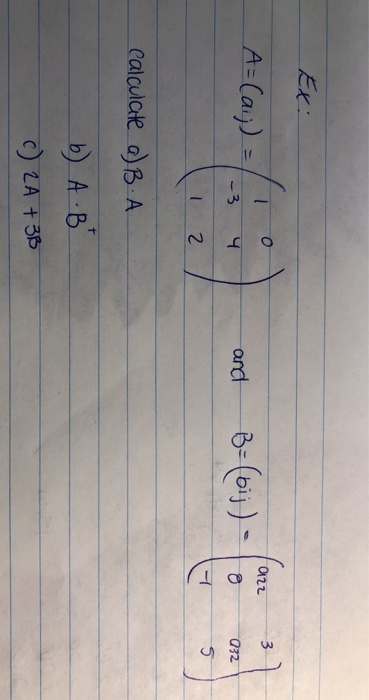 Ex:
A = (aij) = ( 1 0 and B = (bij) = ( a22 3
-3 4 0 a32
1 2 ) -1 5 )
Calculate a) B · A
b) A · B^t
c) 2A + 3B